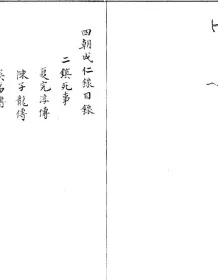 四朝成仁錄目錄
二鎮死事
夏完淳傳
陳子龍傳